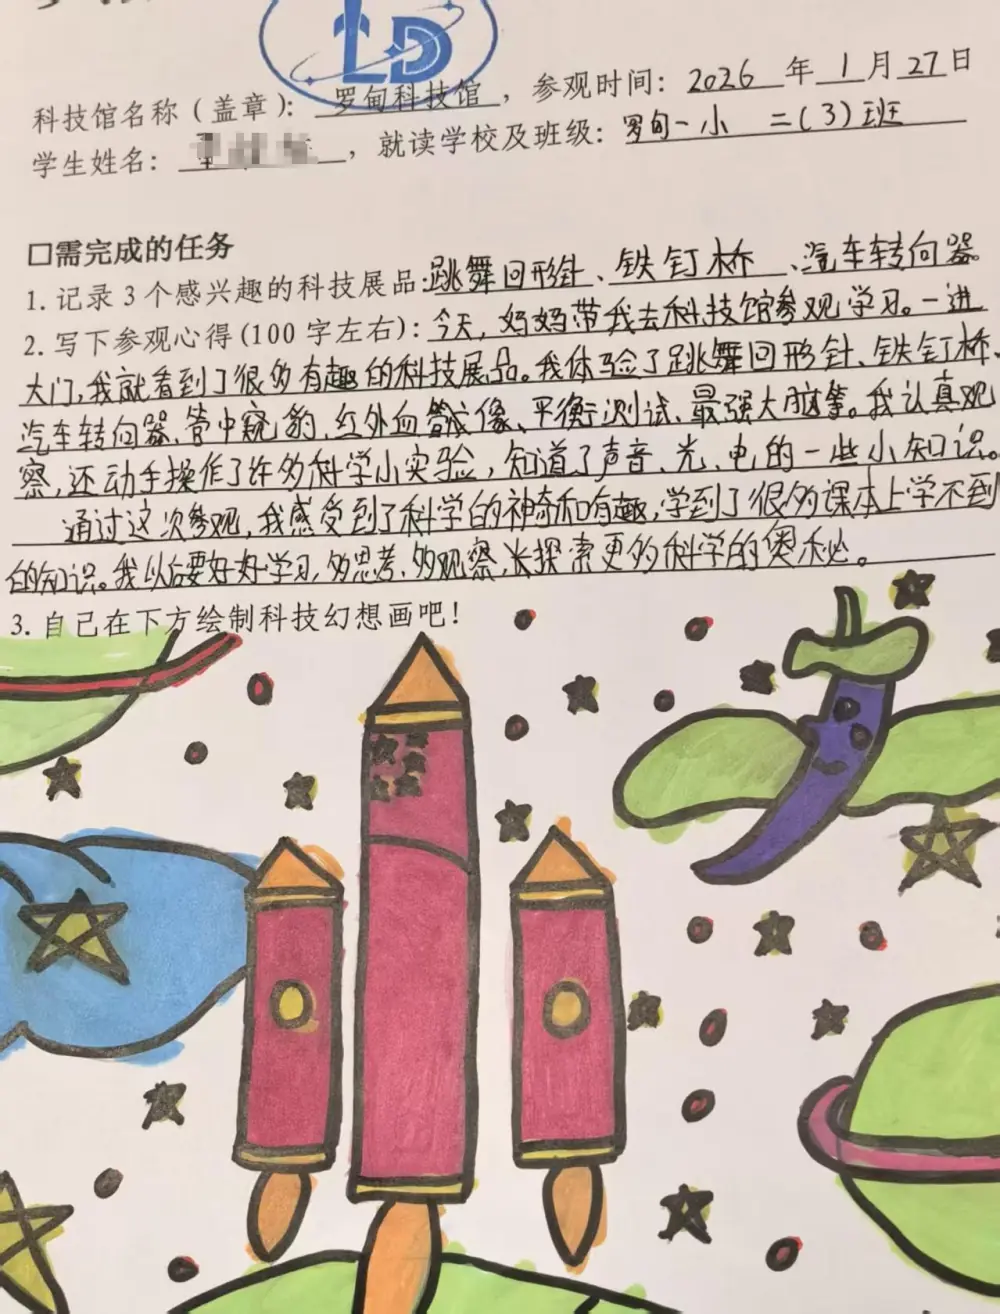 LD
科技馆名称（盖章）：罗甸科技馆，参观时间：2026年1月27日
学生姓名：，就读学校及班级：罗甸一小 二（3）班
□需完成的任务
1. 记录3个感兴趣的科技展品：跳舞回形针、铁钉桥、汽车转向器
2. 写下参观心得(100字左右)：今天，妈妈带我去科技馆参观学习。一进
大门，我就看到了很多有趣的科技展品。我体验了跳舞回形针、铁钉桥、
汽车转向器、管中窥豹、红外血管成像、平衡测试、最强大脑等。我认真观
察，还动手操作了许多科学小实验，知道了声音、光、电的一些小知识。
通过这次参观，我感受到了科学的神奇和有趣，学到了很多课本上学不到
的知识。我以后要好好学习，多思考、多观察，长探索更多科学的奥秘。
3. 自己在下方绘制科技幻想画吧！